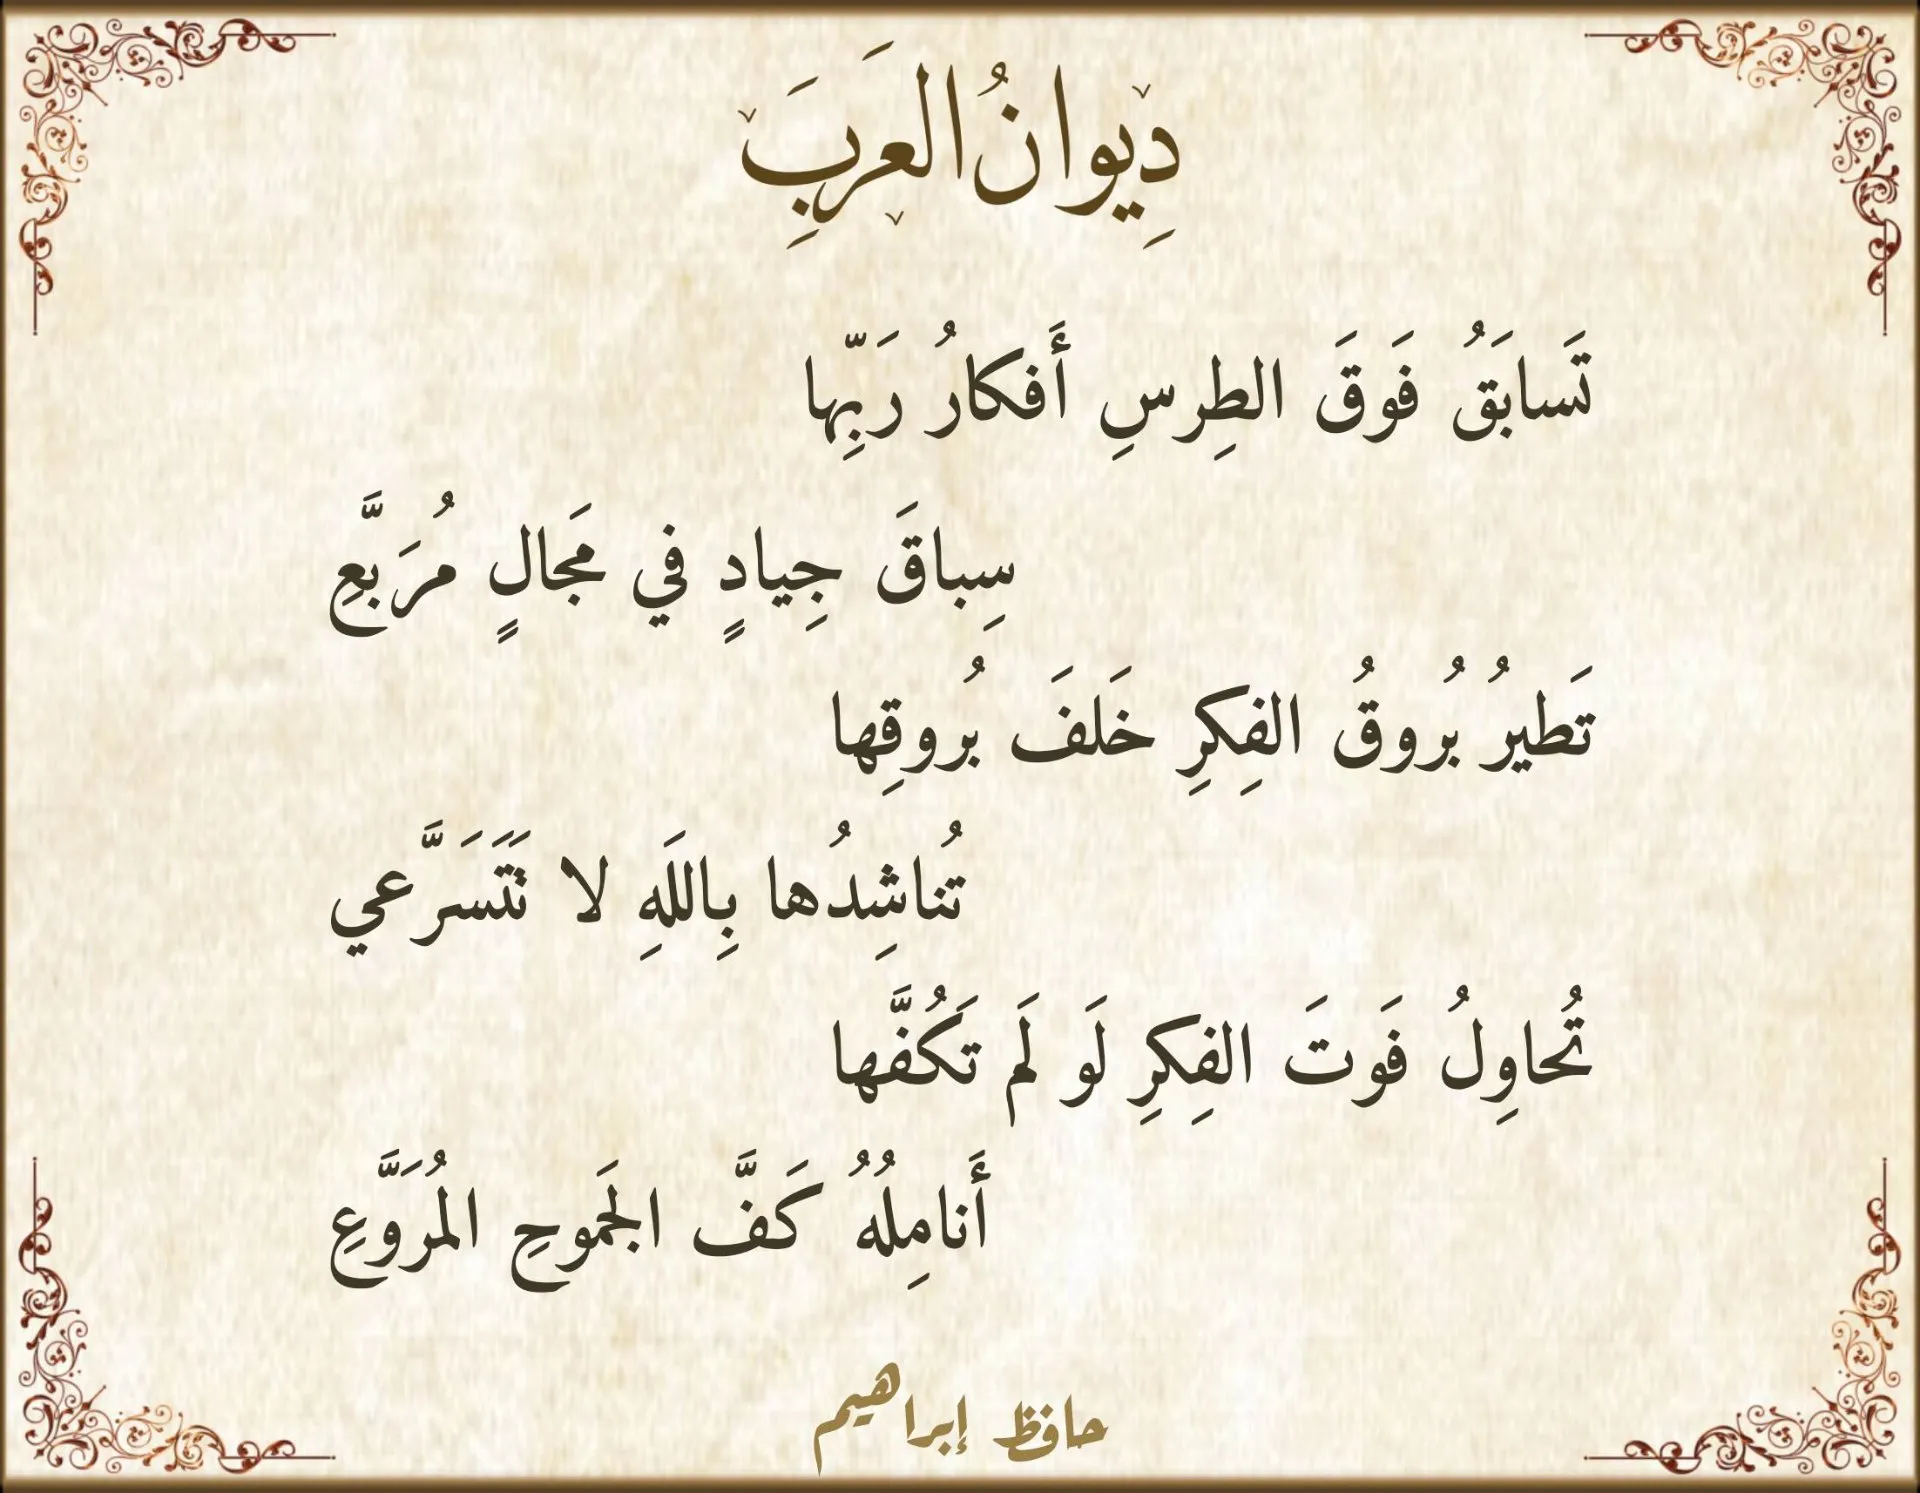 دِيوانُ العَرَبَِ
تَسابَقُ فَوقَ الطِرسِ أَفكارُ رَبِّها
سِباقَ جِيادٍ في مَجالٍ مُرَبَّعِ
تَطيرُ بُروقُ الفِكرِ خَلفَ بُروقِها
تُناشِدُها بِاللَهِ لا تَتَسَرَّعي
تُحاوِلُ فَوتَ الفِكرِ لَو لَم تَكُفَّها
أَنامِلُهُ كَفَّ الجَموحِ المُرَوَّعِ
حافظ إبراهيم